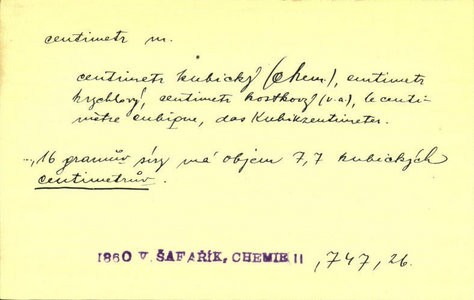 centimetr m.
centimetr kubický (chem.), centimetr
krychlový, centimetr kostkový (v. a.), le centi-
mètre cubique, das Kubikzentimeter.
„16 gramův síry má objem 7,7 kubických
centimetrův.
1860 V. ŠAFAŘÍK, CHEMIE II , 747, 26.